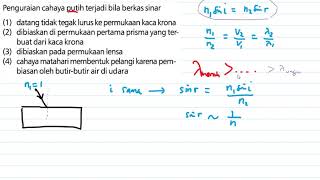 Penguraian cahaya putih terjadi bila berkas sinar
(1) datang tidak tegak lurus ke permukaan kaca krona
(2) dibiaskan di permukaan pertama prisma yang ter-
buat dari kaca krona
(3) dibiaskan pada permukaan lensa
(4) cahaya matahari membentuk pelangi karena pem-
biasan oleh butir-butir air di udara
n₁ sin i = n₂ sin r
n₁/n₂ = v₂/v₁ = λ₂/λ₁
λmerah > .... > λungu
n₁=1
i sama → sin r = n₁ sin i/n₂
sin r ~ 1/n